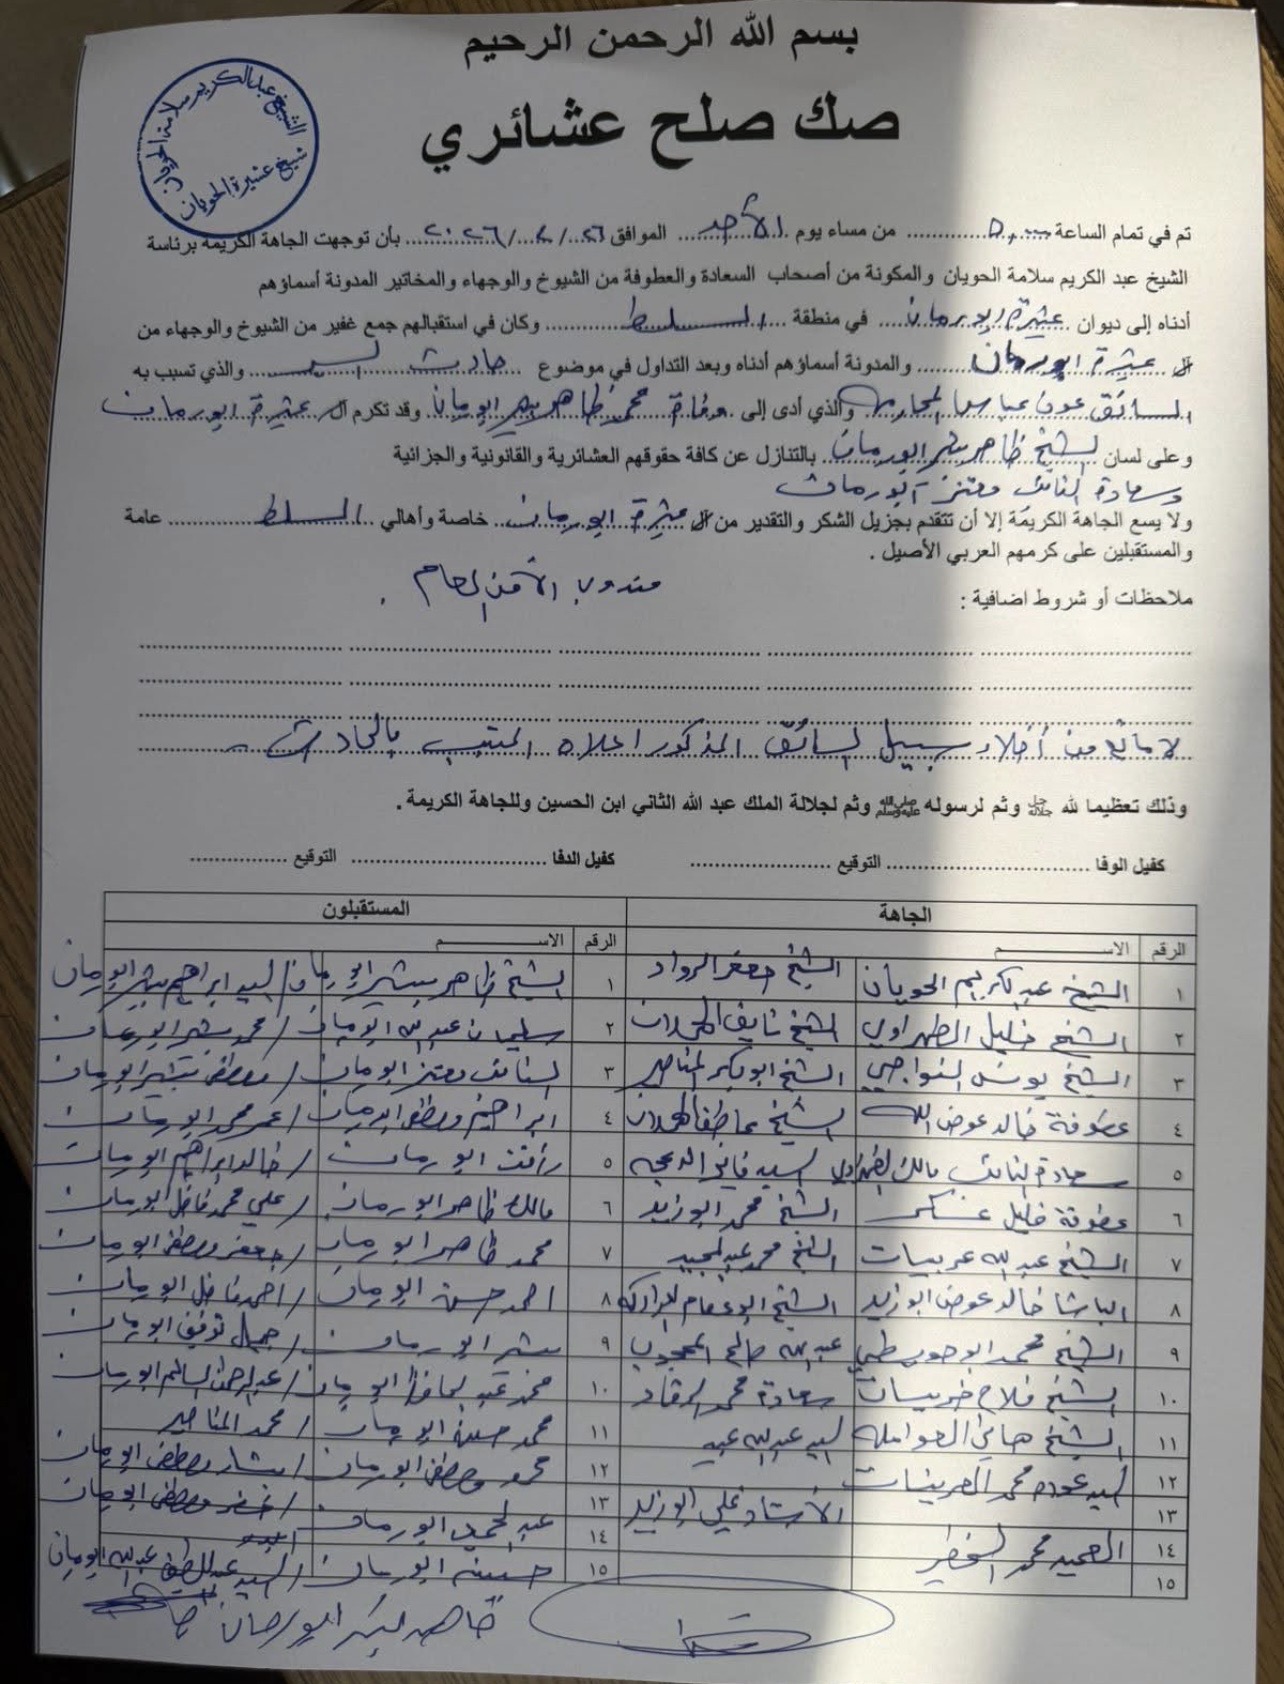 بسم الله الرحمن الرحيم
صك صلح عشائري
الشيخ عبدالكريم سلامة الحويان
شيخ عشيرة الحويان
تم في تمام الساعة ٥,٠٠ من مساء يوم الأحد الموافق ٢٠٢٦/ /٢٦ بأن توجهت الجاهة الكريمة برئاسة
الشيخ عبد الكريم سلامة الحويان والمكونة من أصحاب السعادة والعطوفة من الشيوخ والوجهاء والمخاتير المدونة أسماؤهم
أدناه إلى ديوان عشيرة ابو رمان في منطقة السلط وكان في استقبالهم جمع غفير من الشيوخ والوجهاء من
ال عشيرة ابو رمان والمدونة أسماؤهم أدناه وبعد التداول في موضوع حادث سير والذي تسبب به
السائق عون عباس والذي أدى إلى وفاة محمد ظاهر بشير ابو رمان وقد تكرم ال عشيرة ابو رمان
وعلى لسان الشيخ ظاهر بشير ابو رمان بالتنازل عن كافة حقوقهم العشائرية والقانونية والجزائية
وسعادة النائب معتز ابو رمان
ولا يسع الجاهة الكريمة إلا أن تتقدم بجزيل الشكر والتقدير من ال عشيرة ابو رمان خاصة وأهالي السلط عامة
والمستقبلين على كرمهم العربي الأصيل .
ملاحظات أو شروط اضافية : مندوب الأمن العام .
لا مانع من أخلاء سبيل السائق المذكور اعلاه المتسبب بالحادث
وذلك تعظيما لله جل جلاله وثم لرسوله ﷺ وثم لجلالة الملك عبد الله الثاني ابن الحسين وللجاهة الكريمة .
كفيل الوفا التوقيع كفيل الدفا التوقيع
الجاهة المستقبلون
الرقم الاســـم الرقم الاســـم
١ الشيخ عبد الكريم الحويان الشيخ جعفر الرواد ١ الشيخ ظاهر بشير ابو رمان / السيد ابراهيم بشير ابو رمان
٢ الشيخ خليل الظهراوي الشيخ نايف ٢ سليمان عبد الله ابو رمان / محمد بشير ابو رمان
٣ الشيخ يونس النواجي الشيخ ابو بكر المناصير ٣ النائب معتز ابو رمان / مصطفى بشير ابو رمان
٤ عطوفة خالد عوض الله الشيخ عاطف ٤ ابراهيم مصطفى ابو رمان / عمر محمد ابو رمان
٥ سعادة النائب مالك الظهراوي السيد فايز الدعجه ٥ رأفت ابو رمان / خالد ابراهيم ابو رمان
٦ عطوفة خليل عسكر الشيخ محمد ابو زيد ٦ مالك ظاهر ابو رمان / علي محمد فاضل ابو رمان
٧ الشيخ عبد الله عربيات الشيخ محمد عبد المجيد ٧ محمد ظاهر ابو رمان / جعفر مصطفى ابو رمان
٨ الباشا خالد عوض ابو زيد الشيخ ابو عصام ٨ احمد حسن ابو رمان / احمد فاضل ابو رمان
٩ الشيخ محمد ابو حويطي عبد الله صالح ٩ بشير ابو رمان / جميل توفيق ابو رمان
١٠ الشيخ فلاح خريسات سعادة محمد الرقاد ١٠ محمد عبد الحافظ ابو رمان / عبد الرحمن السالم ابو رمان
١١ الشيخ هاني العوامله السيد عبد الله عبيد ١١ محمد حسين ابو رمان / محمد المناصير
١٢ السيد عوده محمد العرينات ١٢ محمود مصطفى ابو رمان / بشار مصطفى ابو رمان
١٣ الأستاذ علي ابو زيد ١٣ عبد الحميد ابو رمان / خضر مصطفى ابو رمان
١٤ العميد محمد الخضير ١٤
١٥ ١٥ حسين ابو رمان / السيد عبد اللطيف عبد الله ابو رمان
ظاهر بشير ابو رمان